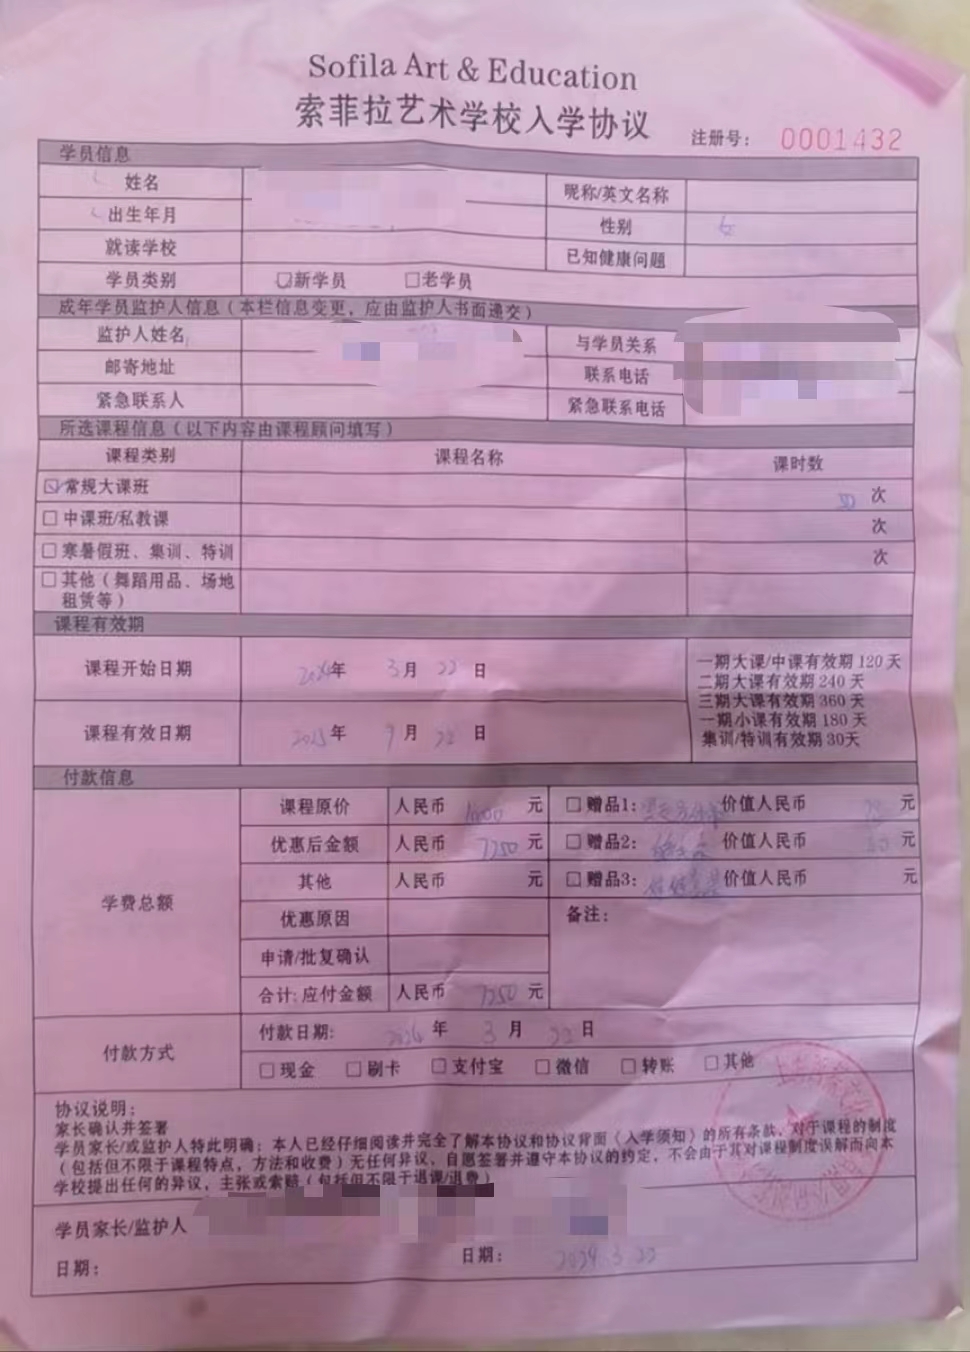 Sofila Art & Education
索菲拉艺术学校入学协议
注册号: 0001432
学员信息
姓名 昵称/英文名称
出生年月 性别 女
就读学校 已知健康问题
学员类别 新学员 老学员
成年学员监护人信息(本栏信息变更,应由监护人书面递交)
监护人姓名 与学员关系
邮寄地址 联系电话
紧急联系人 紧急联系电话
所选课程信息(以下内容由课程顾问填写)
课程类别 课程名称 课时数
常规大课班 次
中课班/私教课 次
寒暑假班、集训、特训 次
其他(舞蹈用品、场地
租赁等)
课程有效期
课程开始日期 2024年 3月 22日
课程有效日期 2025年 9月 22日
一期大课/中课有效期120天
二期大课有效期240天
三期大课有效期360天
一期小课有效期180天
集训/特训有效期30天
付款信息
学费总额
课程原价 人民币 元 赠品1: 价值人民币 元
优惠后金额 人民币 7250 元 赠品2: 价值人民币 元
其他 人民币 元 赠品3: 价值人民币 元
优惠原因 备注:
申请/批复确认
合计:应付金额 人民币 7250 元
付款方式
付款日期: 2024年 3月 22日
现金 刷卡 支付宝 微信 转账 其他
协议说明:
家长确认并签署
学员家长/或监护人特此明确:本人已经仔细阅读并完全了解本协议和协议背面《入学须知》的所有条款,对于课程的制度
(包括但不限于课程特点,方法和收费)无任何异议、自愿签署并遵守本协议的约定,不会由于其对课程制度误解而向本
学校提出任何的异议,主张或索赔(包括但不限于退课/退费)
学员家长/监护人
日期: 日期: 2024.3.22